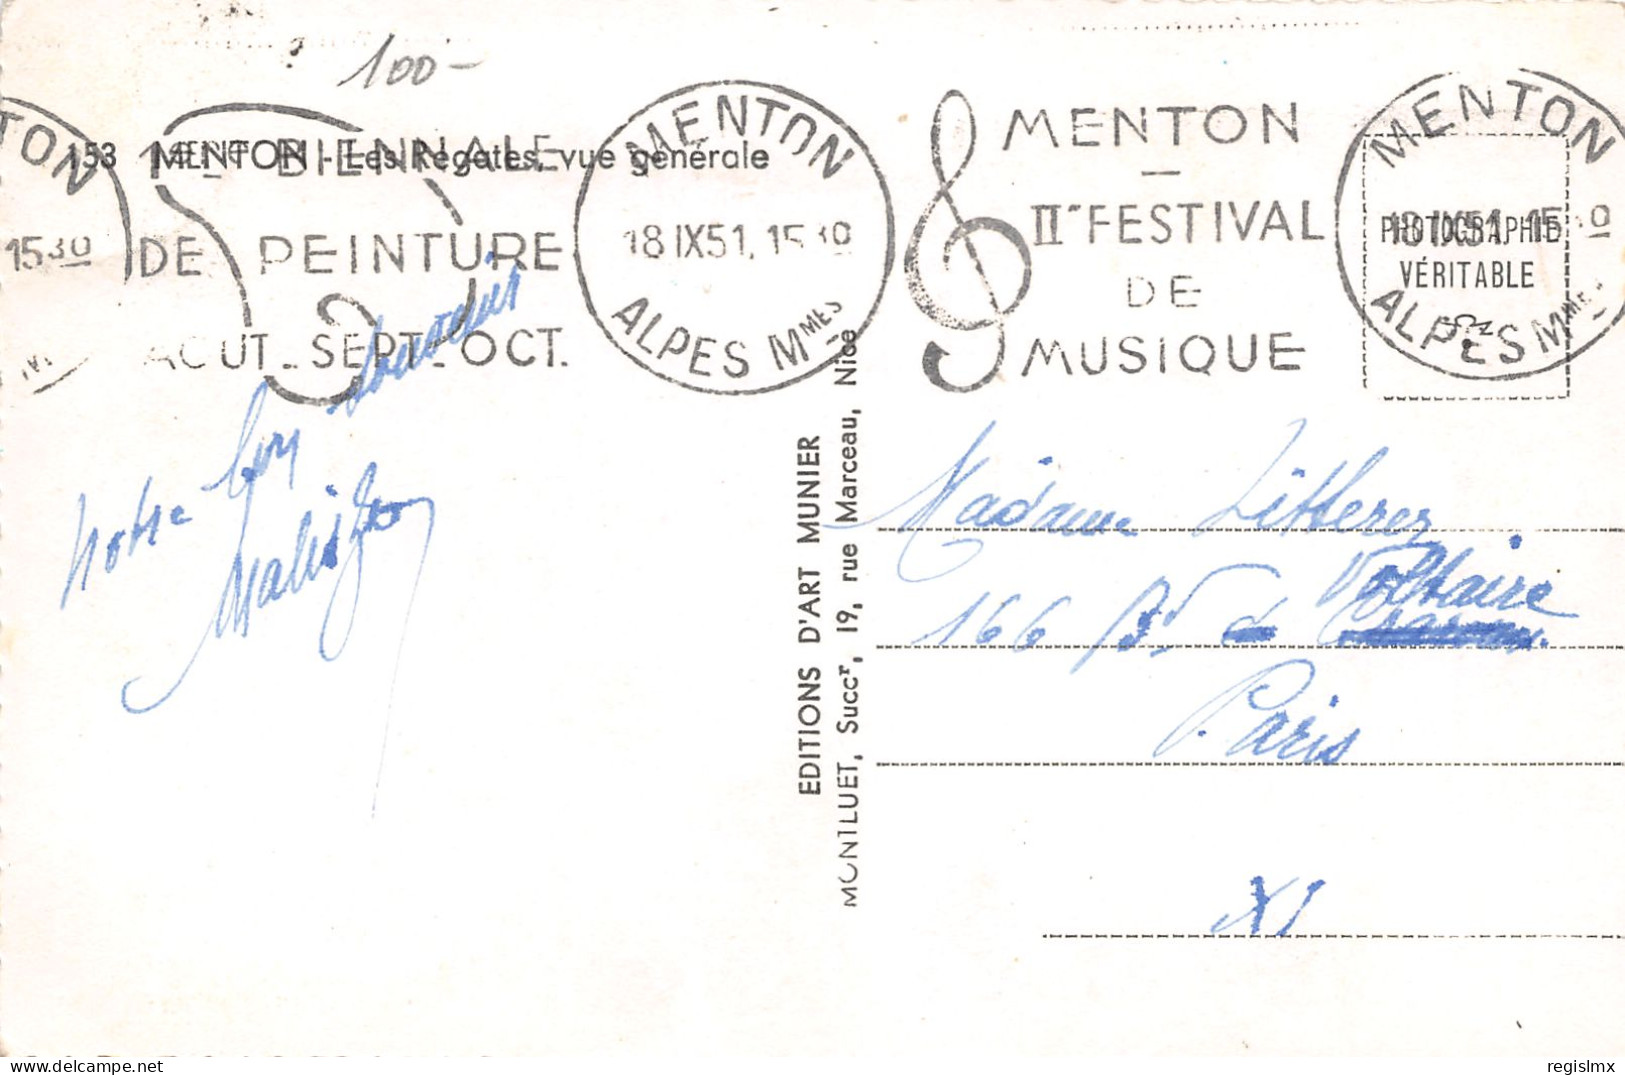 100-
153 MENTON - Les Régates, vue générale
1ère BIENNALE
DE PEINTURE
AOUT - SEPT - OCT.
TON
15 30
MENTON
18 IX 51. 15 30
ALPES Mmes
MENTON
-
IIe FESTIVAL
DE
MUSIQUE
MENTON
18 IX 51. 15 30
ALPES Mmes
PHOTOGRAPHIE
VÉRITABLE
Notre bon souvenir
EDITIONS D'ART MUNIER
MONTLUET, Succr, 19, rue Marceau, Nice
Madame Litterer
166 Bd Voltaire
Paris
XI
regislmx